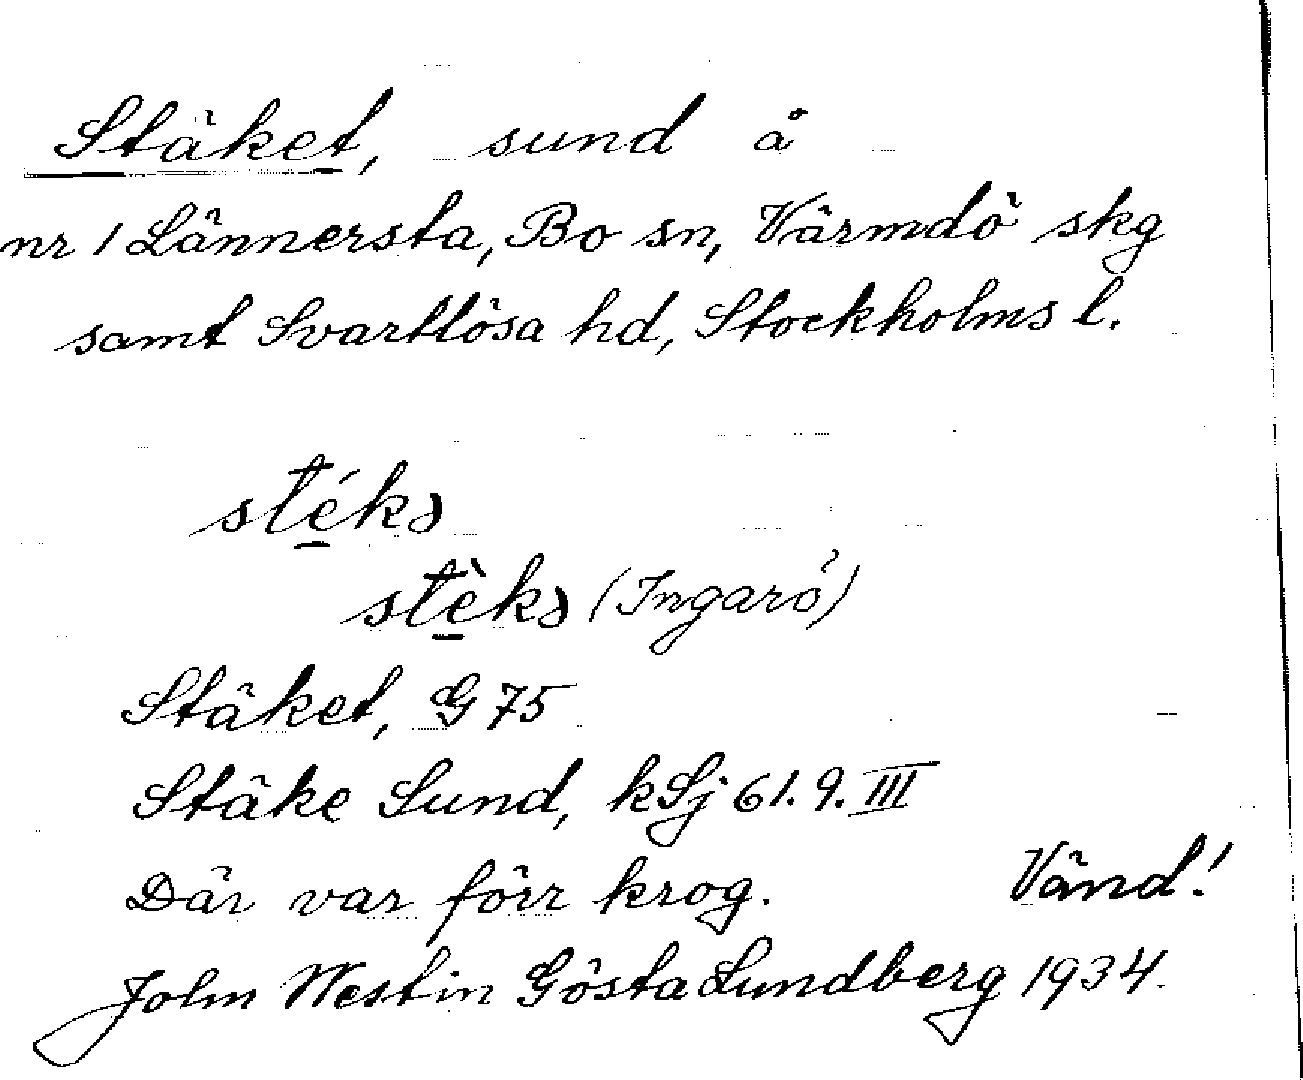 Stäket, sund å
nr 1 Lännersta, Bo sn, Värmdö skg
samt Svartlösa hd, Stockholms l.
sté̱kə
stè̱kə (Ingarö)
Stäket, G 75
Stäke Sund, kSj 61.9.III
Där var förr krog. Vänd!
John Westin Gösta Lundberg 1934.